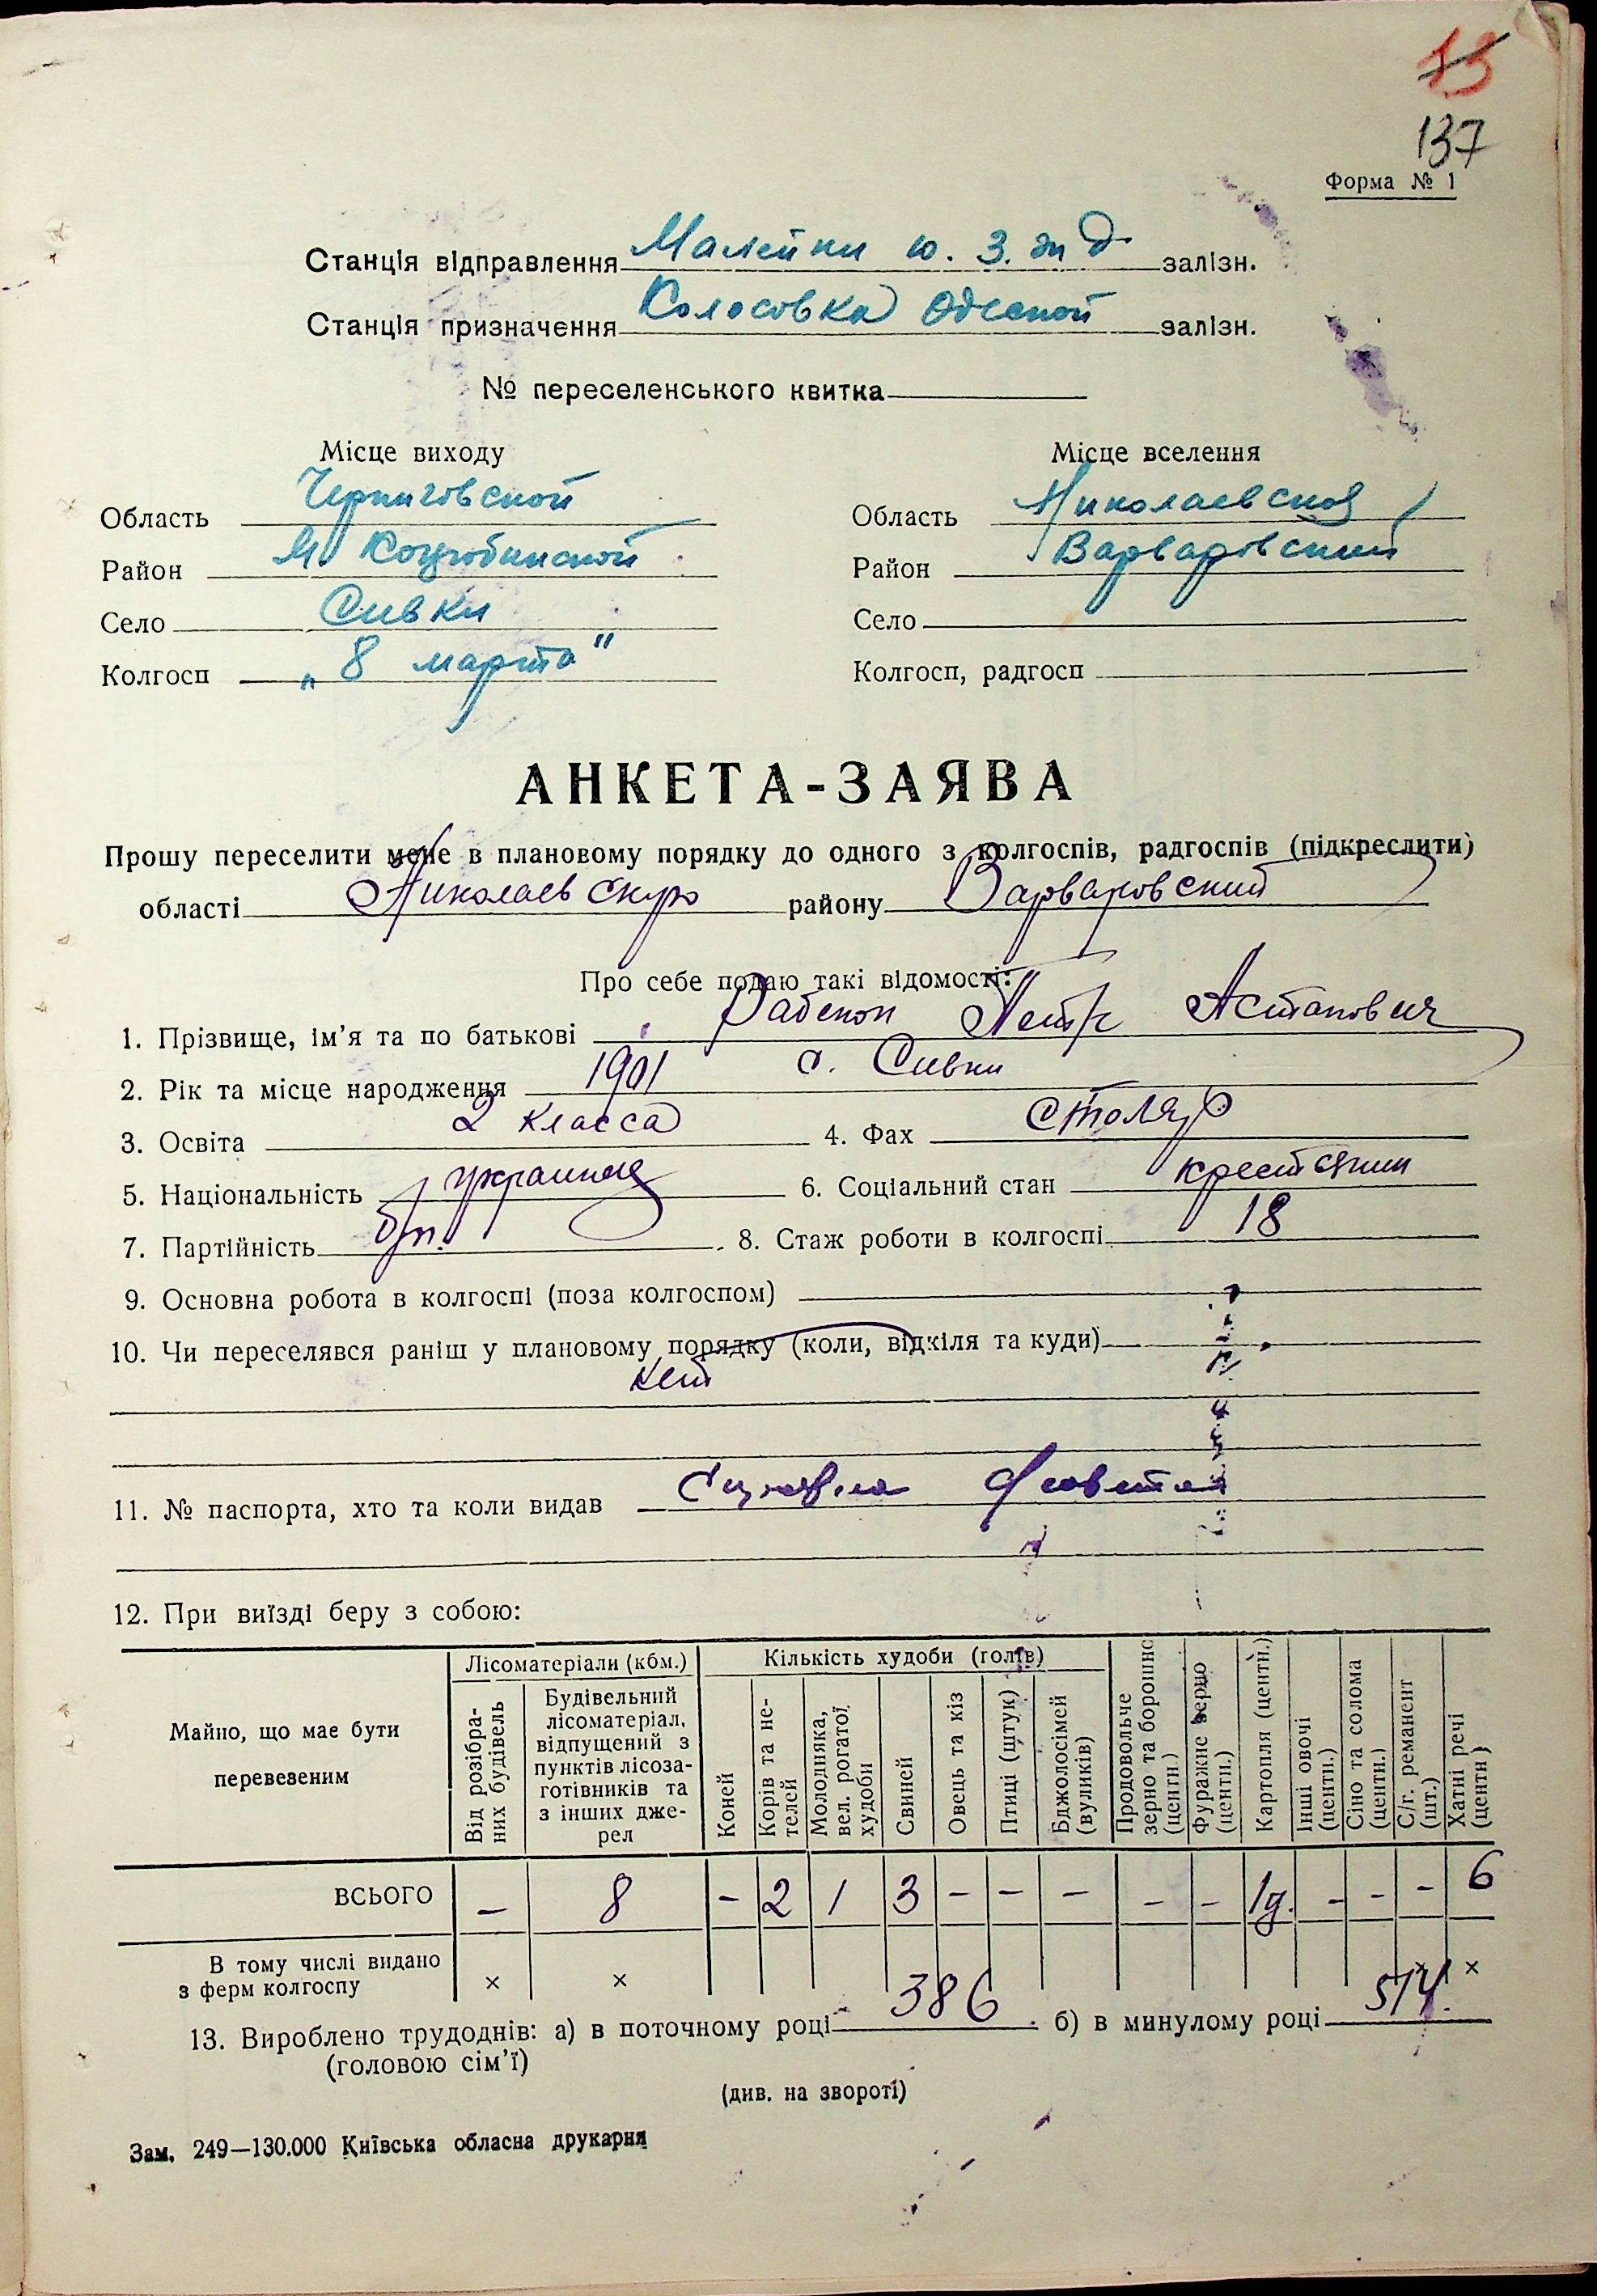 73
137
Форма № 1
Станція відправлення Малейки ю. З. ж д. залізн.
Станція призначення Колосовка Одесской залізн.
№ переселенського квитка
Місце виходу
Місце вселення
Область Черниговской
Область Николаевской
Район М Коцюбинской
Район Варваровский
Село Сивки
Село
Колгосп „8 марта"
Колгосп, радгосп
АНКЕТА-ЗАЯВА
Прошу переселити мене в плановому порядку до одного з колгоспів, радгоспів (підкреслити)
області Николаевскую району Варваровский
Про себе подаю такі відомості:
1. Прізвище, ім'я та по батькові Петр Астапович
2. Рік та місце народження 1901 с. Сивки
3. Освіта 2 класса 4. Фах столяр
5. Національність украинец 6. Соціальний стан крестянин
7. Партійність б/п. 8. Стаж роботи в колгоспі 18
9. Основна робота в колгоспі (поза колгоспом)
10. Чи переселявся раніш у плановому порядку (коли, відкіля та куди)
нет
11. № паспорта, хто та коли видав
12. При виїзді беру з собою:
Майно, що має бути перевезеним
Лісоматеріали (кбм.)
Кількість худоби (голів)
Від розібраних будівель
Будівельний лісоматеріал, відпущений з пунктів лісозаготівників та з інших джерел
Коней
Корів та нетелей
Молодняка, вел. рогатої худоби
Свиней
Овець та кіз
Птиці (штук)
Бджолосімей (вуликів)
Продовольче зерно та борошно (центн.)
Фуражне зерно (центн.)
Картопля (центн.)
Інші овочі (центн.)
Сіно та солома (центн.)
С/г. реманент (шт.)
Хатні речі (центн)
ВСЬОГО — 8 - 2 1 3 - - - - - 1ц. - - - 6
В тому числі видано
з ферм колгоспу × × × ×
13. Вироблено трудоднів: а) в поточному році 386. б) в минулому році 514.
(головою сім'ї)
(див. на звороті)
Зам. 249—130.000 Київська обласна друкарня